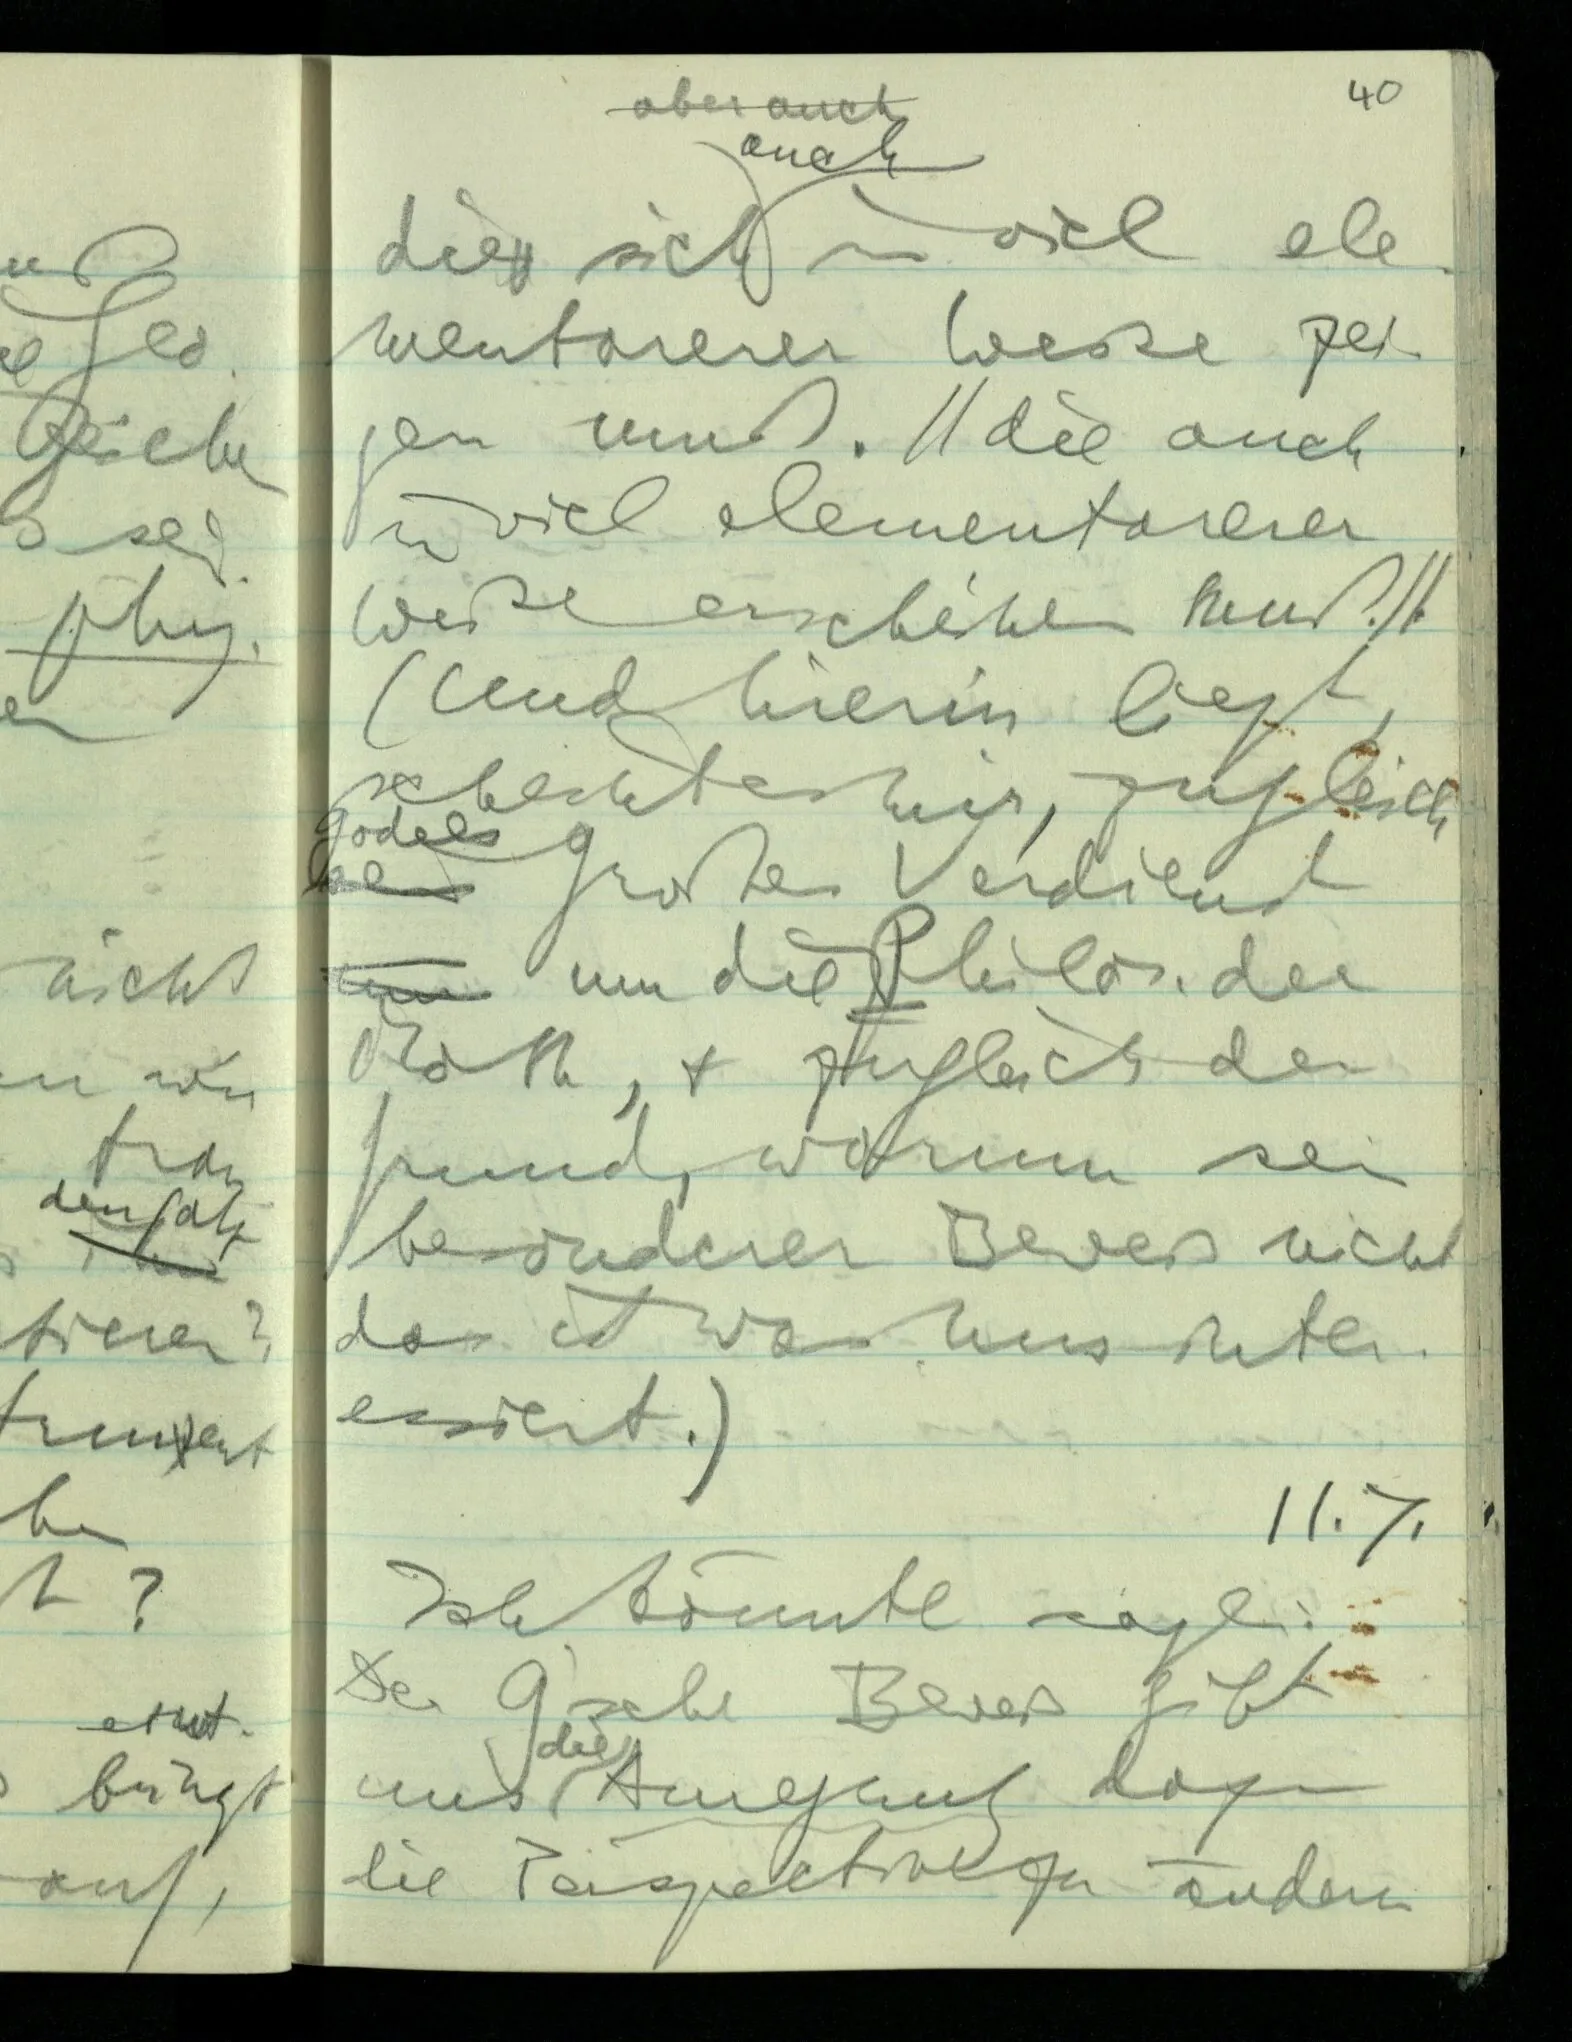 40
aber auch
auch
die sich in viel ele-
mentarerer Weise zei-
gen muß. //die auch
in viel elementarerer
Weise erscheinen muß.//
(Und hierin liegt,
scheint es mir, zugleich
Gödels
sein großes Verdienst
um um die Philos. der
Math, + zugleich der
Grund, warum sein
besonderer Beweis nicht
das ist was uns inter-
essiert.)
11.7.
Ich könnte sagen:
Der G'sche Beweis gibt
die
uns Anregung dazu
die Perspective zu ändern
nicht
den Satz
bringt
auf,